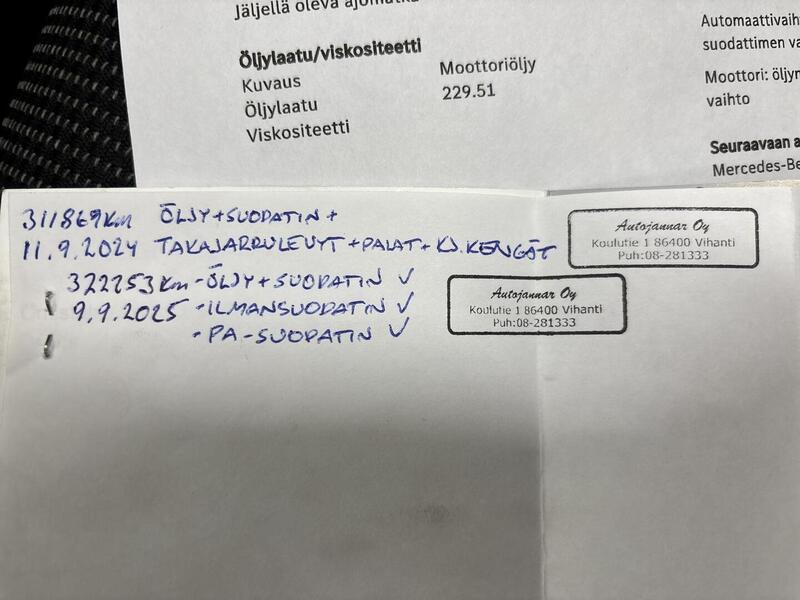 Jäljellä oleva ajomatka
Öljylaatu/viskositeetti
Kuvaus Moottoriöljy
Öljylaatu 229.51
Viskositeetti
Automaattivaih
suodattimen va
Moottori: öljyn
vaihto
Seuraavaan a
Mercedes-Be
311869km ÖLJY+SUODATIN+
11.9.2024 TAKAJARRULEVYT+PALAT+KJ.KENGÄT
Autojannar Oy
Koulutie 1 86400 Vihanti
Puh:08-281333
322253km -ÖLJY+SUODATIN ✓
9.9.2025 -ILMANSUODATIN ✓
-PA-SUODATIN ✓
Autojannar Oy
Koulutie 1 86400 Vihanti
Puh:08-281333